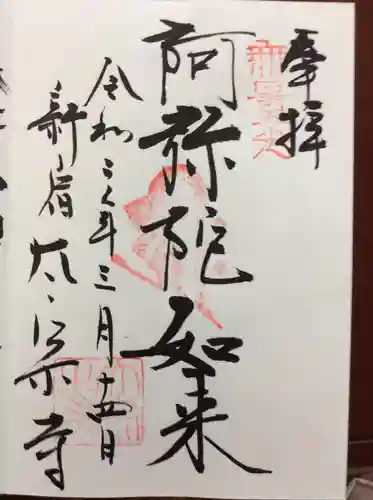 奉拝
阿弥陀如来
令和三年三月十四日
新宿太宗寺